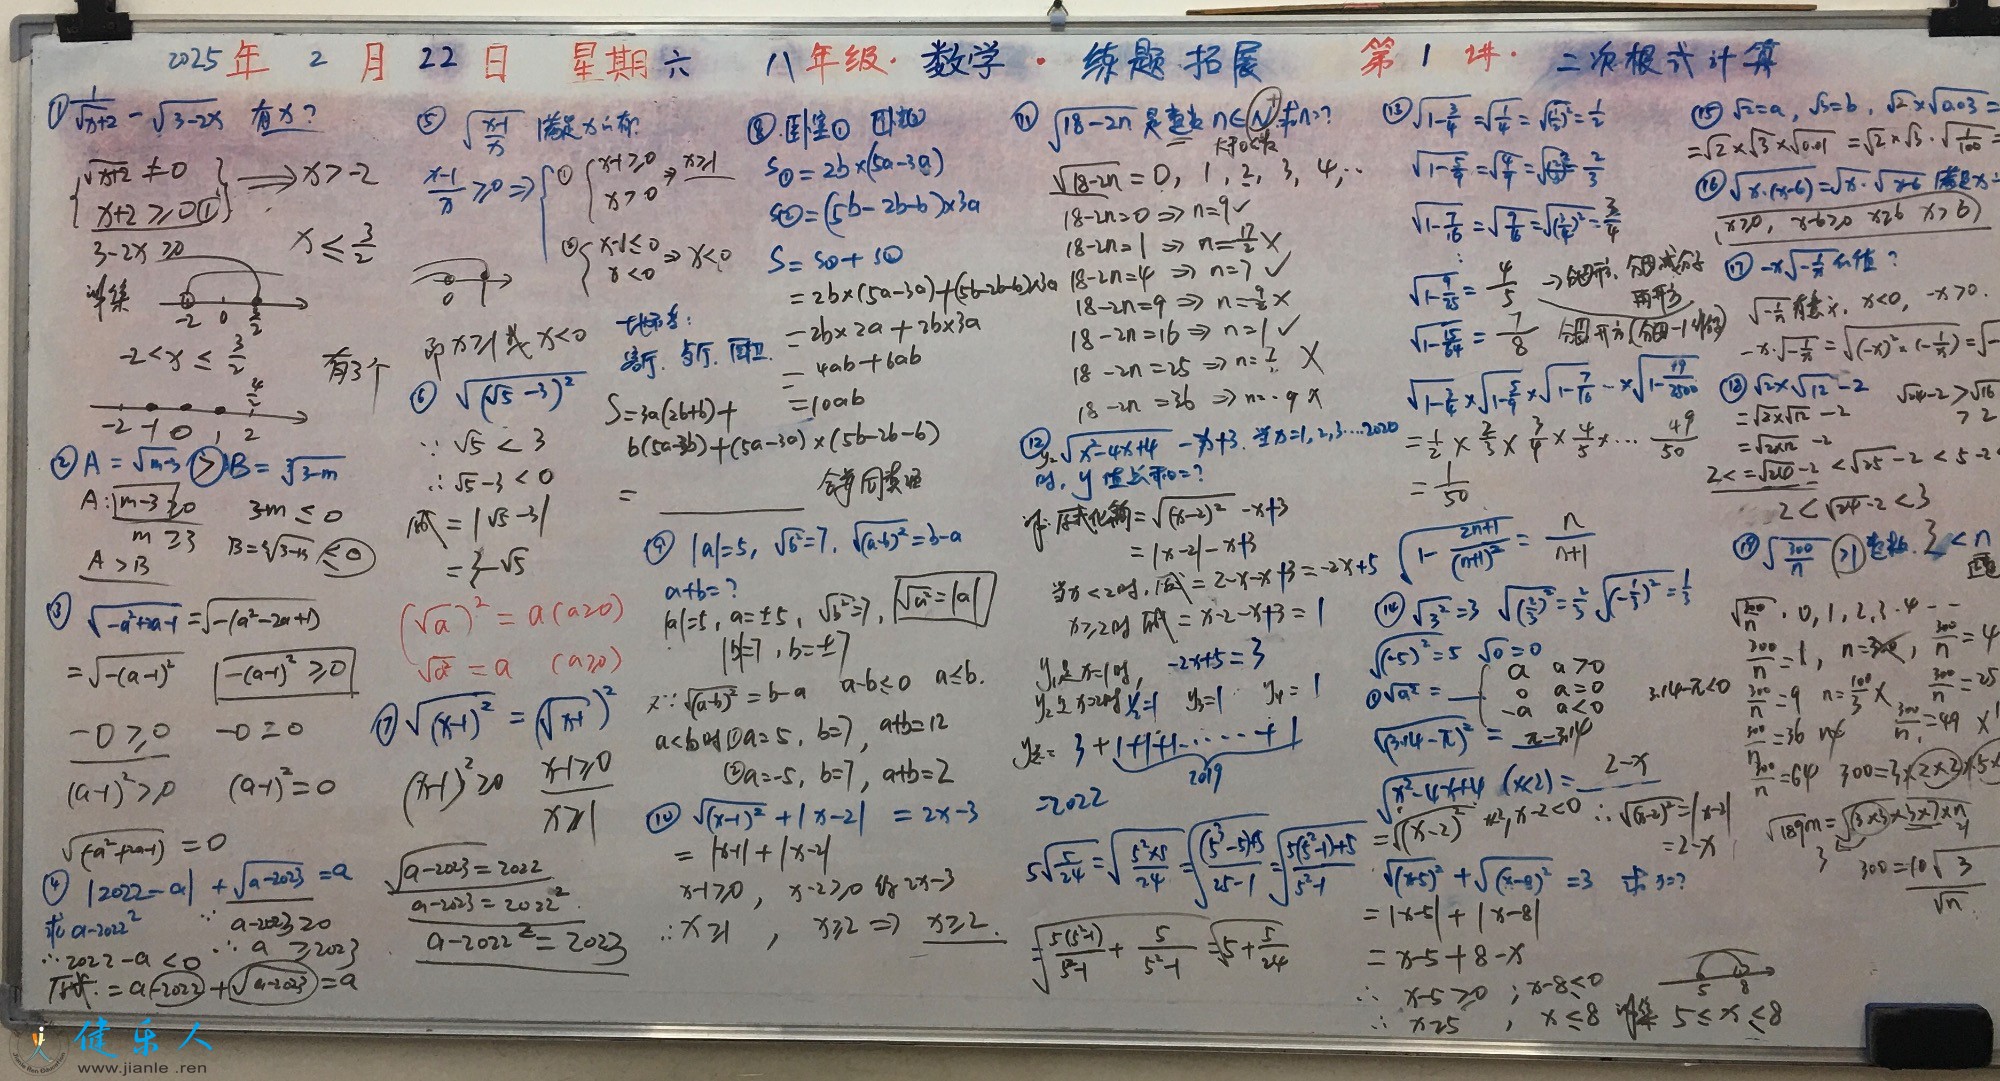 2025年 2 月 22 日 星期六 八年级·数学·练题拓展 第 1 讲·二次根式计算
① 1/√(x+2) - √(3-2x) 有x?
√(x+2) ≠ 0
x+2 ≥ 0 ① ⟹ x > -2
3-2x ≥ 0 x ≤ 3/2
-2 0 3/2
-2 < x ≤ 3/2 有3个
-2 -1 0 1 2
② A = √(m-3) > B = ∛(3-m)
A: m-3 ≥ 0 3-m ≤ 0
m ≥ 3 B = ∛(3-m) ≤ 0
A > B
③ √(-a²+2a-1) = √(-(a²-2a+1))
= √(-(a-1)²) -(a-1)² ≥ 0
-0 ≥ 0 -0 = 0
(a-1)² ≥ 0 (a-1)² = 0
√(-a²+2a-1) = 0
④ |2022-a| + √(a-2023) = a
求 a-2022² ∵ a-2023 ≥ 0
∴ 2022-a < 0 ∴ a ≥ 2023
原式: = a-2022 + √(a-2023) = a
⑤ √((x-1)/x) 满足x
(x-1)/x ≥ 0 ⇒ ① x-1 ≥ 0 x > 0 ⇒ x ≥ 1
② x-1 ≤ 0 x < 0 ⇒ x < 0
0 1
即 x ≥ 1 或 x < 0
⑥ √((√5-3)²)
∵ √5 < 3
∴ √5-3 < 0
原式 = |√5-3|
= 3-√5
(√a)² = a (a≥0)
√a² = a (a≥0)
⑦ √((x-1)²) = (√(x-1))²
(x-1)² ≥ 0 x-1 ≥ 0
x ≥ 1
√(a-2023) = 2022
a-2023 = 2022²
a-2022² = 2023
⑧ 卧室① 卧室②
S① = 2b×(5a-3a)
S② = (5b-2b-b)×3a
S = S①+S②
= 2b×(5a-3a)+(5b-2b-b)×3a
= 2b×2a+2b×3a
= 4ab+6ab
= 10ab
S = 3a(2b+b)+
b(5a-3b)+(5a-3a)×(5b-2b-b)
= 合并同类项
⑨ |a|=5, √b²=7, √(a-b)²=b-a
a+b=?
|a|=5, a=±5, √b²=7, √a²=|a|
|b|=7, b=±7
又∵ √(a-b)² = b-a a-b≤0 a≤b.
a<b时 ①a=5, b=7, a+b=12
②a=-5, b=7, a+b=2
⑩ √(x-1)² + |x-2| = 2x-3
= |x-1| + |x-2|
x-1≥0, x-2≥0 2x-3
∴ x≥1, x≥2 ⇒ x≥2.
⑪ √(18-2n) 是整数 n∈N⁺ 求n=?
√(18-2n) = 0, 1, 2, 3, 4, ..
18-2n=0 ⇒ n=9 ✓
18-2n=1 ⇒ n=17/2 ×
18-2n=4 ⇒ n=7 ✓
18-2n=9 ⇒ n=9/2 ×
18-2n=16 ⇒ n=1 ✓
18-2n=25 ⇒ n=? ×
18-2n=36 ⇒ n=-9 ×
⑫ y=√(x²-4x+4) - x+3. 当x=1,2,3…2020
时, y值总和=?
原式化简=√(x-2)² - x+3
= |x-2| - x+3
当x<2时, 原式 = 2-x-x+3 = -2x+5
x≥2时 原式 = x-2-x+3 = 1
y₁是x=1时, -2x+5=3
y₂是x=2时 y₂=1 y₃=1 y₄=1
y总= 3+1+1+1……+1
2019
=2022
5√(5/24) = √(5²×5/24) = √((5³-5)+5/(25-1)) = √(5(5²-1)+5/(5²-1))
= √(5(5²-1)/(5²-1) + 5/(5²-1)) = √(5+5/24)
⑬ √(1-3/4) = √(1/4) = √(1/2)² = 1/2
√(1-5/9) = √(4/9) = √(2/3)² = 2/3
√(1-7/16) = √(9/16) = √(3/4)² = 3/4
√(1-9/25) = 4/5 → 分母开方, 分母减分子再开方
√(1-15/64) = 7/8 分母开方(分母-1)
√(1-3/4)×√(1-5/9)×√(1-7/16)…×√(1-99/2500)
= 1/2 × 2/3 × 3/4 × 4/5 × … 49/50
= 1/50
√(1-(2n+1)/(n+1)²) = n/(n+1)
⑭ √3²=3 √(2/3)²=2/3 √(-1/3)²=1/3
√(-5)²=5 √0=0
① √a² = a a>0
0 a=0
-a a<0
√(3.14-π)² = π-3.14 3.14-π<0
√(x²-4x+4) (x<2) = 2-x
=√(x-2)² x<2, x-2<0 ∴ √(x-2)²=|x-2|
=2-x
√(x-5)² + √(x-8)² = 3 求x=?
= |x-5| + |x-8|
= x-5+8-x
∴ x-5≥0 ; x-8≤0
∴ x≥5 , x≤8 解集 5≤x≤8
5 8
⑮ √2=a, √3=b, √2×√0.03=
=√2×√3×√0.01 =√2×√3·√(1/100)=
⑯ √(x·(x-6)) = √x·√(x-6) 满足x
(x≥0, x-6≥0 x≥6 x>6)
⑰ -x√(-1/x) 化值?
√(-1/x) 有意义, x<0, -x>0.
-x·√(-1/x) = √((-x)²×(-1/x)) = √-
⑱ √2×√12-2 √24-2 > √16
=√2×√12-2 > 2
=√(2×12)-2
2<=√24-2<√25-2<5-2
2<√24-2<3
⑲ √(300/n) >1 整数. 2<n
√(300/n) · 0, 1, 2, 3, 4 - -
300/n=1, n=300, 300/n=4
300/n=9 n=100/3 ×, 300/n=25
300/n=36 n× 300/n=49 ×
300/n=64 300=3×2×2×5×
√189n = √(3×3×3×7×n)
3 21
300=10√3/√n
健乐人
www.jianle.ren